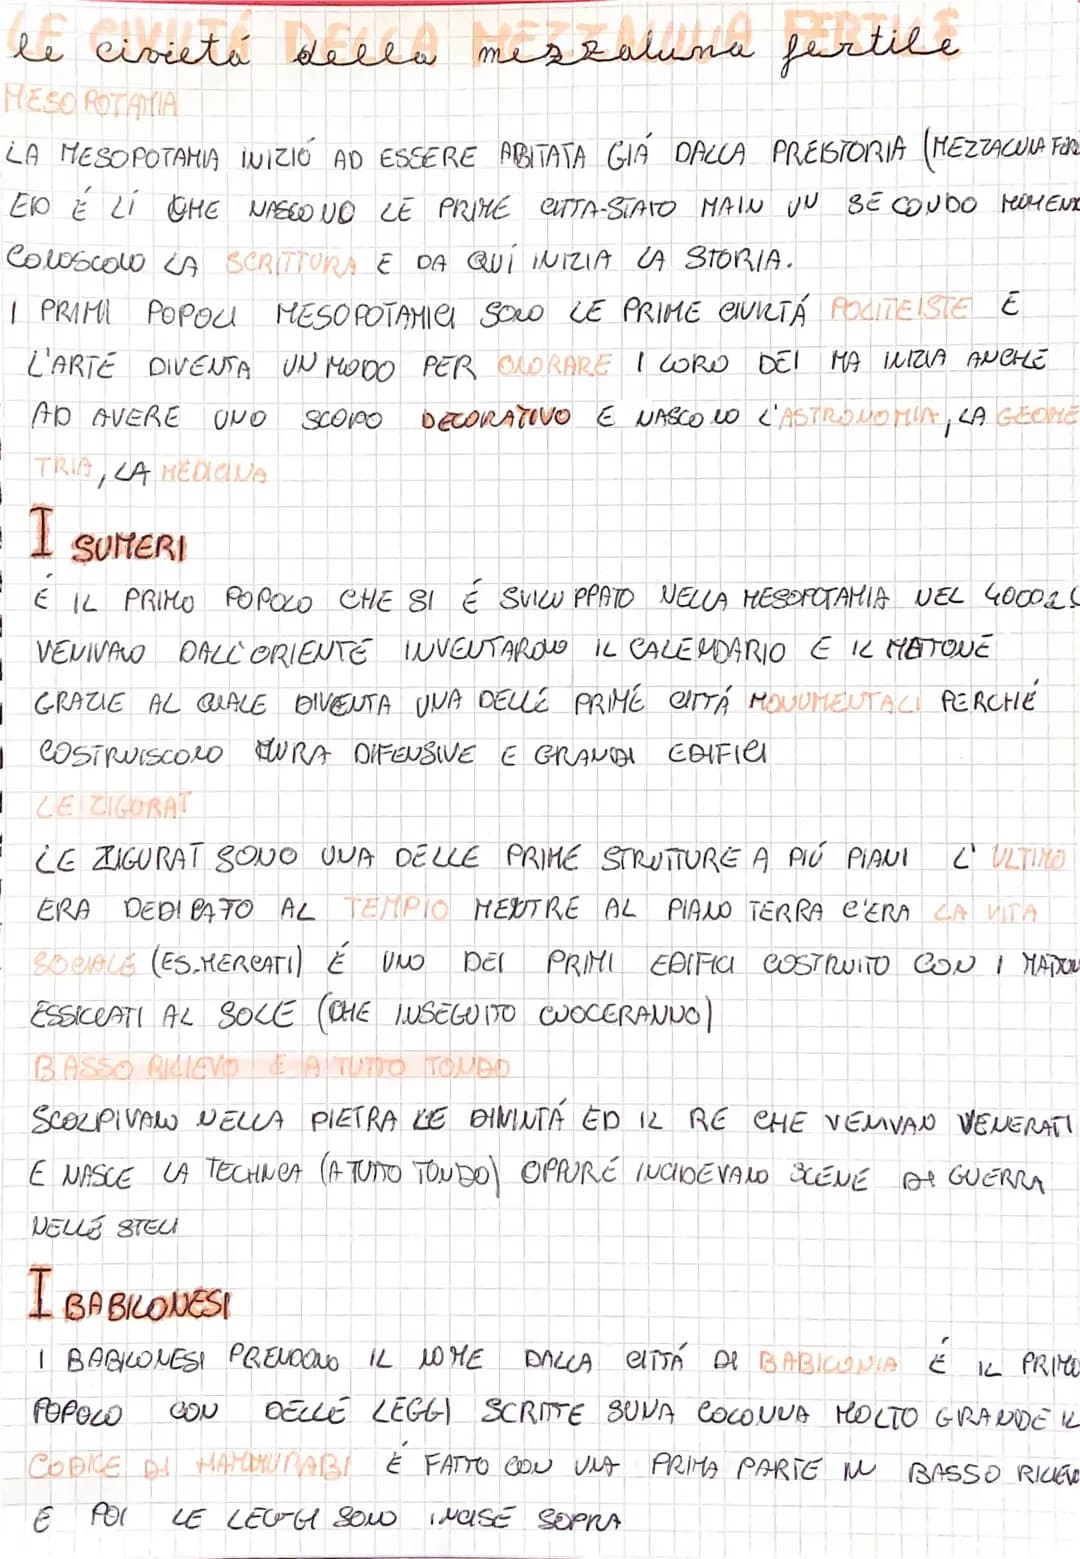 LE CIVILTÁ DELLA MEZZALUNA FERTILE
le civietá della mezzaluna fertile
MESOPOTAMIA
LA MESOPOTAMIA INIZIÓ AD ESSERE ABITATA GIÁ DALLA PREISTORIA (MEZZALUNA FER
ED É LÍ CHE NASCONO LE PRIME CITTA-STATO MA IN UN SECONDO MOMEN
CONOSCONO LA SCRITTURA E DA QUÍ INIZIA LA STORIA.
I PRIMI POPOLI MESOPOTAMICI SONO LE PRIME CIVILTÁ POLITEISTE E
L'ARTE DIVENTA UN MODO PER ONORARE I LORO DEI MA INIZIA ANCHE
AD AVERE UNO SCOPO DECORATIVO E NASCONO L'ASTRONOMIA, LA GEOME
TRIA, LA MEDICINA
I SUMERI
É IL PRIMO POPOLO CHE SI É SVILUPPATO NELLA MESOPOTAMIA NEL 4000 a.C
VENIVANO DALL'ORIENTE INVENTARONO IL CALENDARIO E IL MATONE
GRAZIE AL QUALE DIVENTA UNA DELLE PRIME CITTÁ MONUMENTALI PERCHÉ
COSTRUISCONO MURA DIFENSIVE E GRANDI EDIFICI
LE ZIGURAT
LE ZIGURAT SONO UNA DELLE PRIME STRUTTURE A PIÚ PIANI L'ULTIMO
ERA DEDICATO AL TEMPIO MENTRE AL PIANO TERRA C'ERA LA VITA
SOCIALE (ES.MERCATI) É UNO DEI PRIMI EDIFICI COSTRUITO CON I MATON
ESSICCATI AL SOLE (CHE INSEGUITO CUOCERANNO)
BASSO RILIEVO E A TUTTO TONDO
SCOLPIVANO NELLA PIETRA LE DIVINTÁ ED IL RE CHE VENIVAN VENERATI
E NASCE LA TECHNICA (A TUTTO TONDO) OPPURE INCIDEVANO SCENE DI GUERRA
NELLE STELI
I BABILONESI
I BABILONESI PRENDONO IL NOME DALLA CITTÁ DI BABILONIA É IL PRIMO
POPOLO CON DELLE LEGGI SCRITTE SUNA COLONNA MOLTO GRANDE IL
CODICE DI HAMMURABI É FATTO CON UNA PRIMA PARTE IN BASSO RILIEVO
E POI LE LEGGI SONO INCISE SOPRA